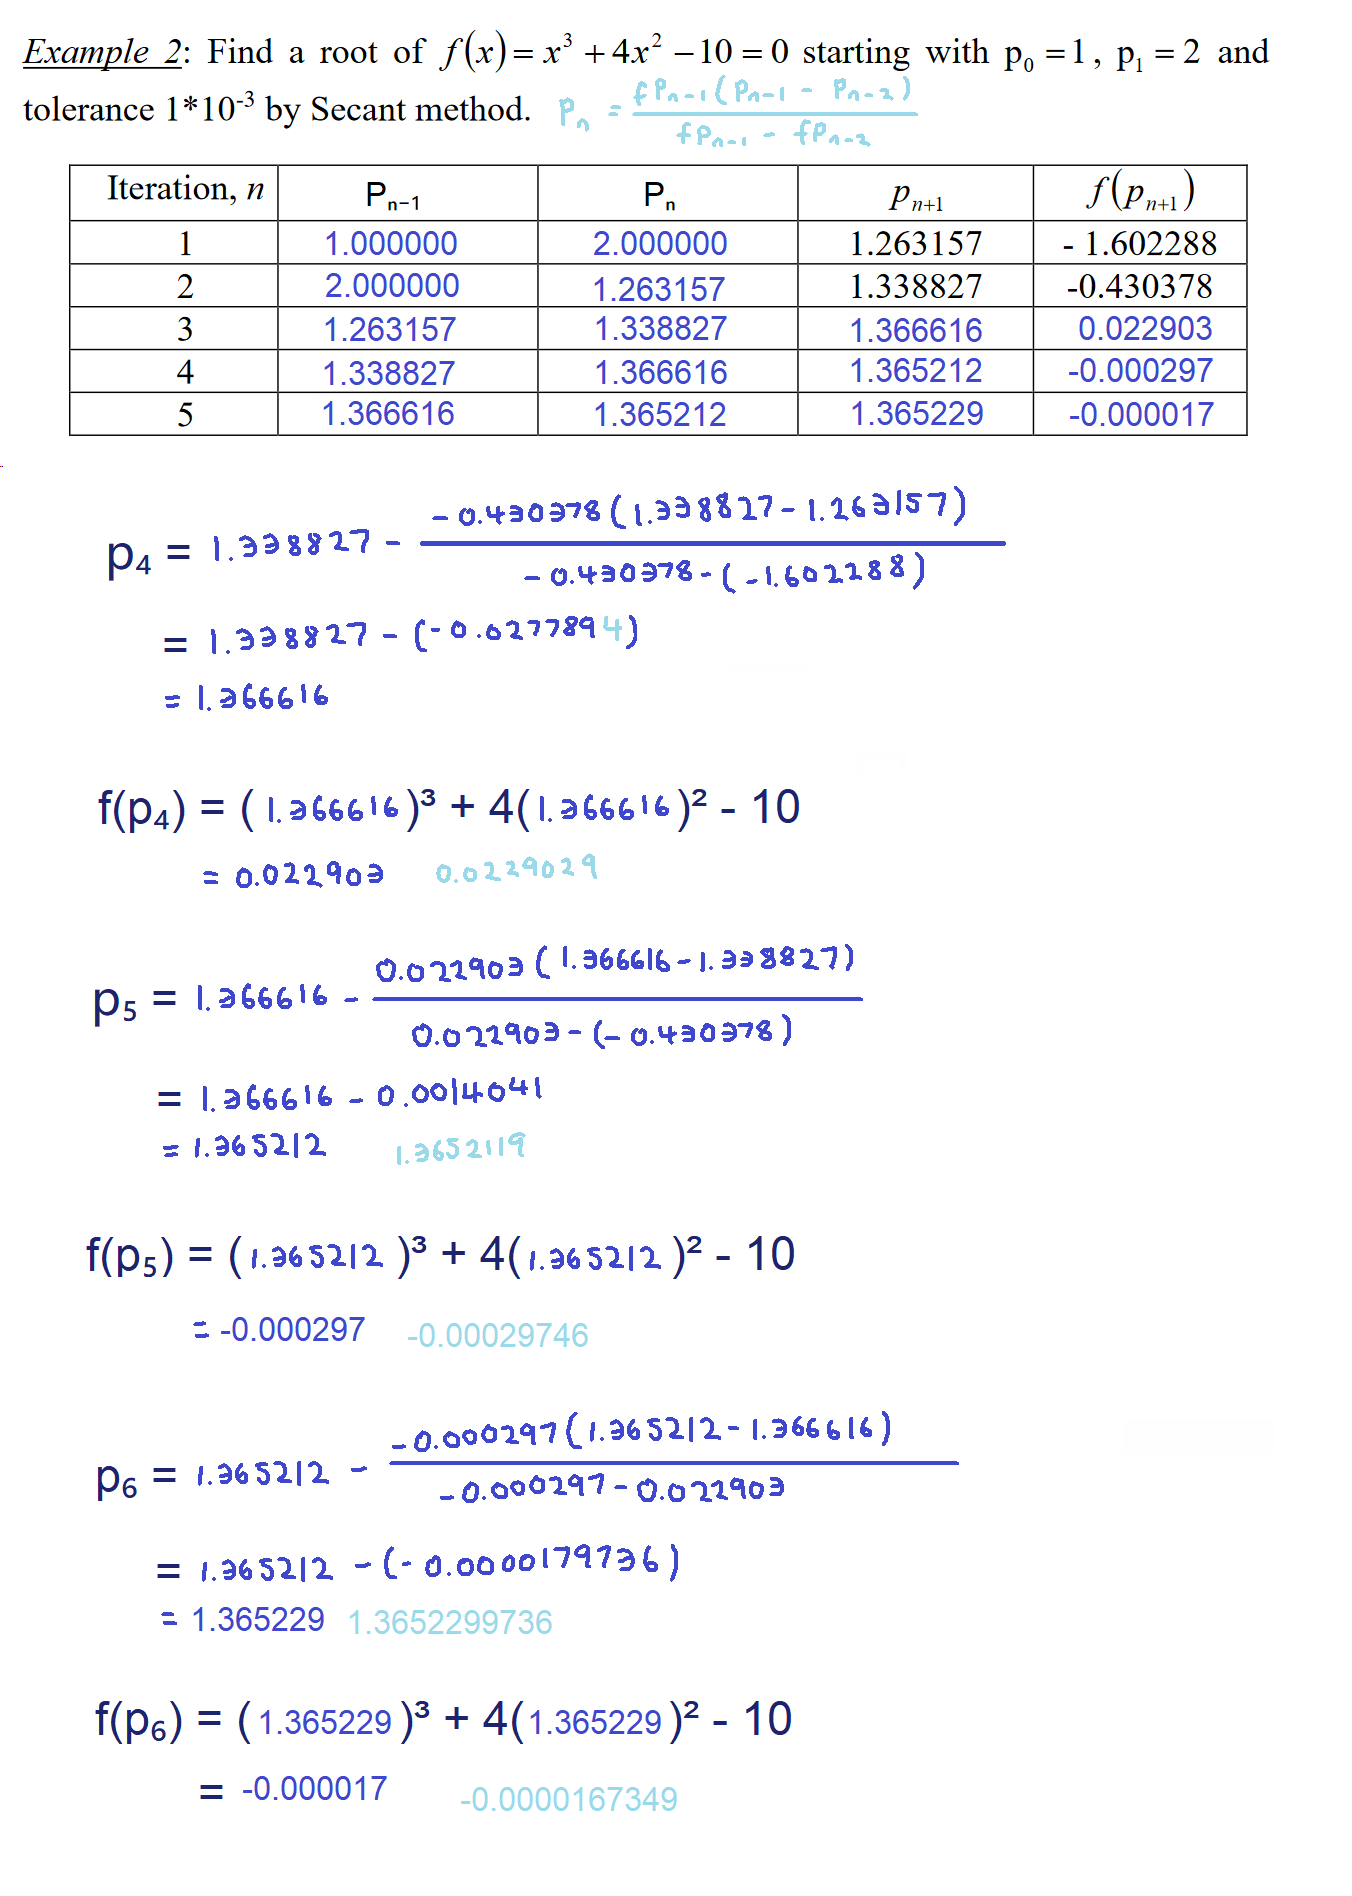 Example 2: Find a root of f(x) = x³ + 4x² − 10 = 0 starting with p₀ = 1, p₁ = 2 and
tolerance 1*10⁻³ by Secant method. Pₙ = fPₙ₋₁(Pₙ₋₁ - Pₙ₋₂) / fPₙ₋₁ - fPₙ₋₂
Iteration, n Pₙ₋₁ Pₙ pₙ₊₁ f(pₙ₊₁)
1 1.000000 2.000000 1.263157 - 1.602288
2 2.000000 1.263157 1.338827 -0.430378
3 1.263157 1.338827 1.366616 0.022903
4 1.338827 1.366616 1.365212 -0.000297
5 1.366616 1.365212 1.365229 -0.000017
p₄ = 1.338827 - -0.430378(1.338827-1.263157) / -0.430378-(-1.602288)
= 1.338827 - (-0.0277894)
= 1.366616
f(p₄) = (1.366616)³ + 4(1.366616)² - 10
= 0.022903 0.0229029
p₅ = 1.366616 - 0.022903(1.366616-1.338827) / 0.022903-(-0.430378)
= 1.366616 - 0.0014041
= 1.365212 1.3652119
f(p₅) = (1.365212)³ + 4(1.365212)² - 10
= -0.000297 -0.00029746
p₆ = 1.365212 - -0.000297(1.365212-1.366616) / -0.000297-0.022903
= 1.365212 -(-0.0000179736)
= 1.365229 1.3652299736
f(p₆) = (1.365229)³ + 4(1.365229)² - 10
= -0.000017 -0.0000167349